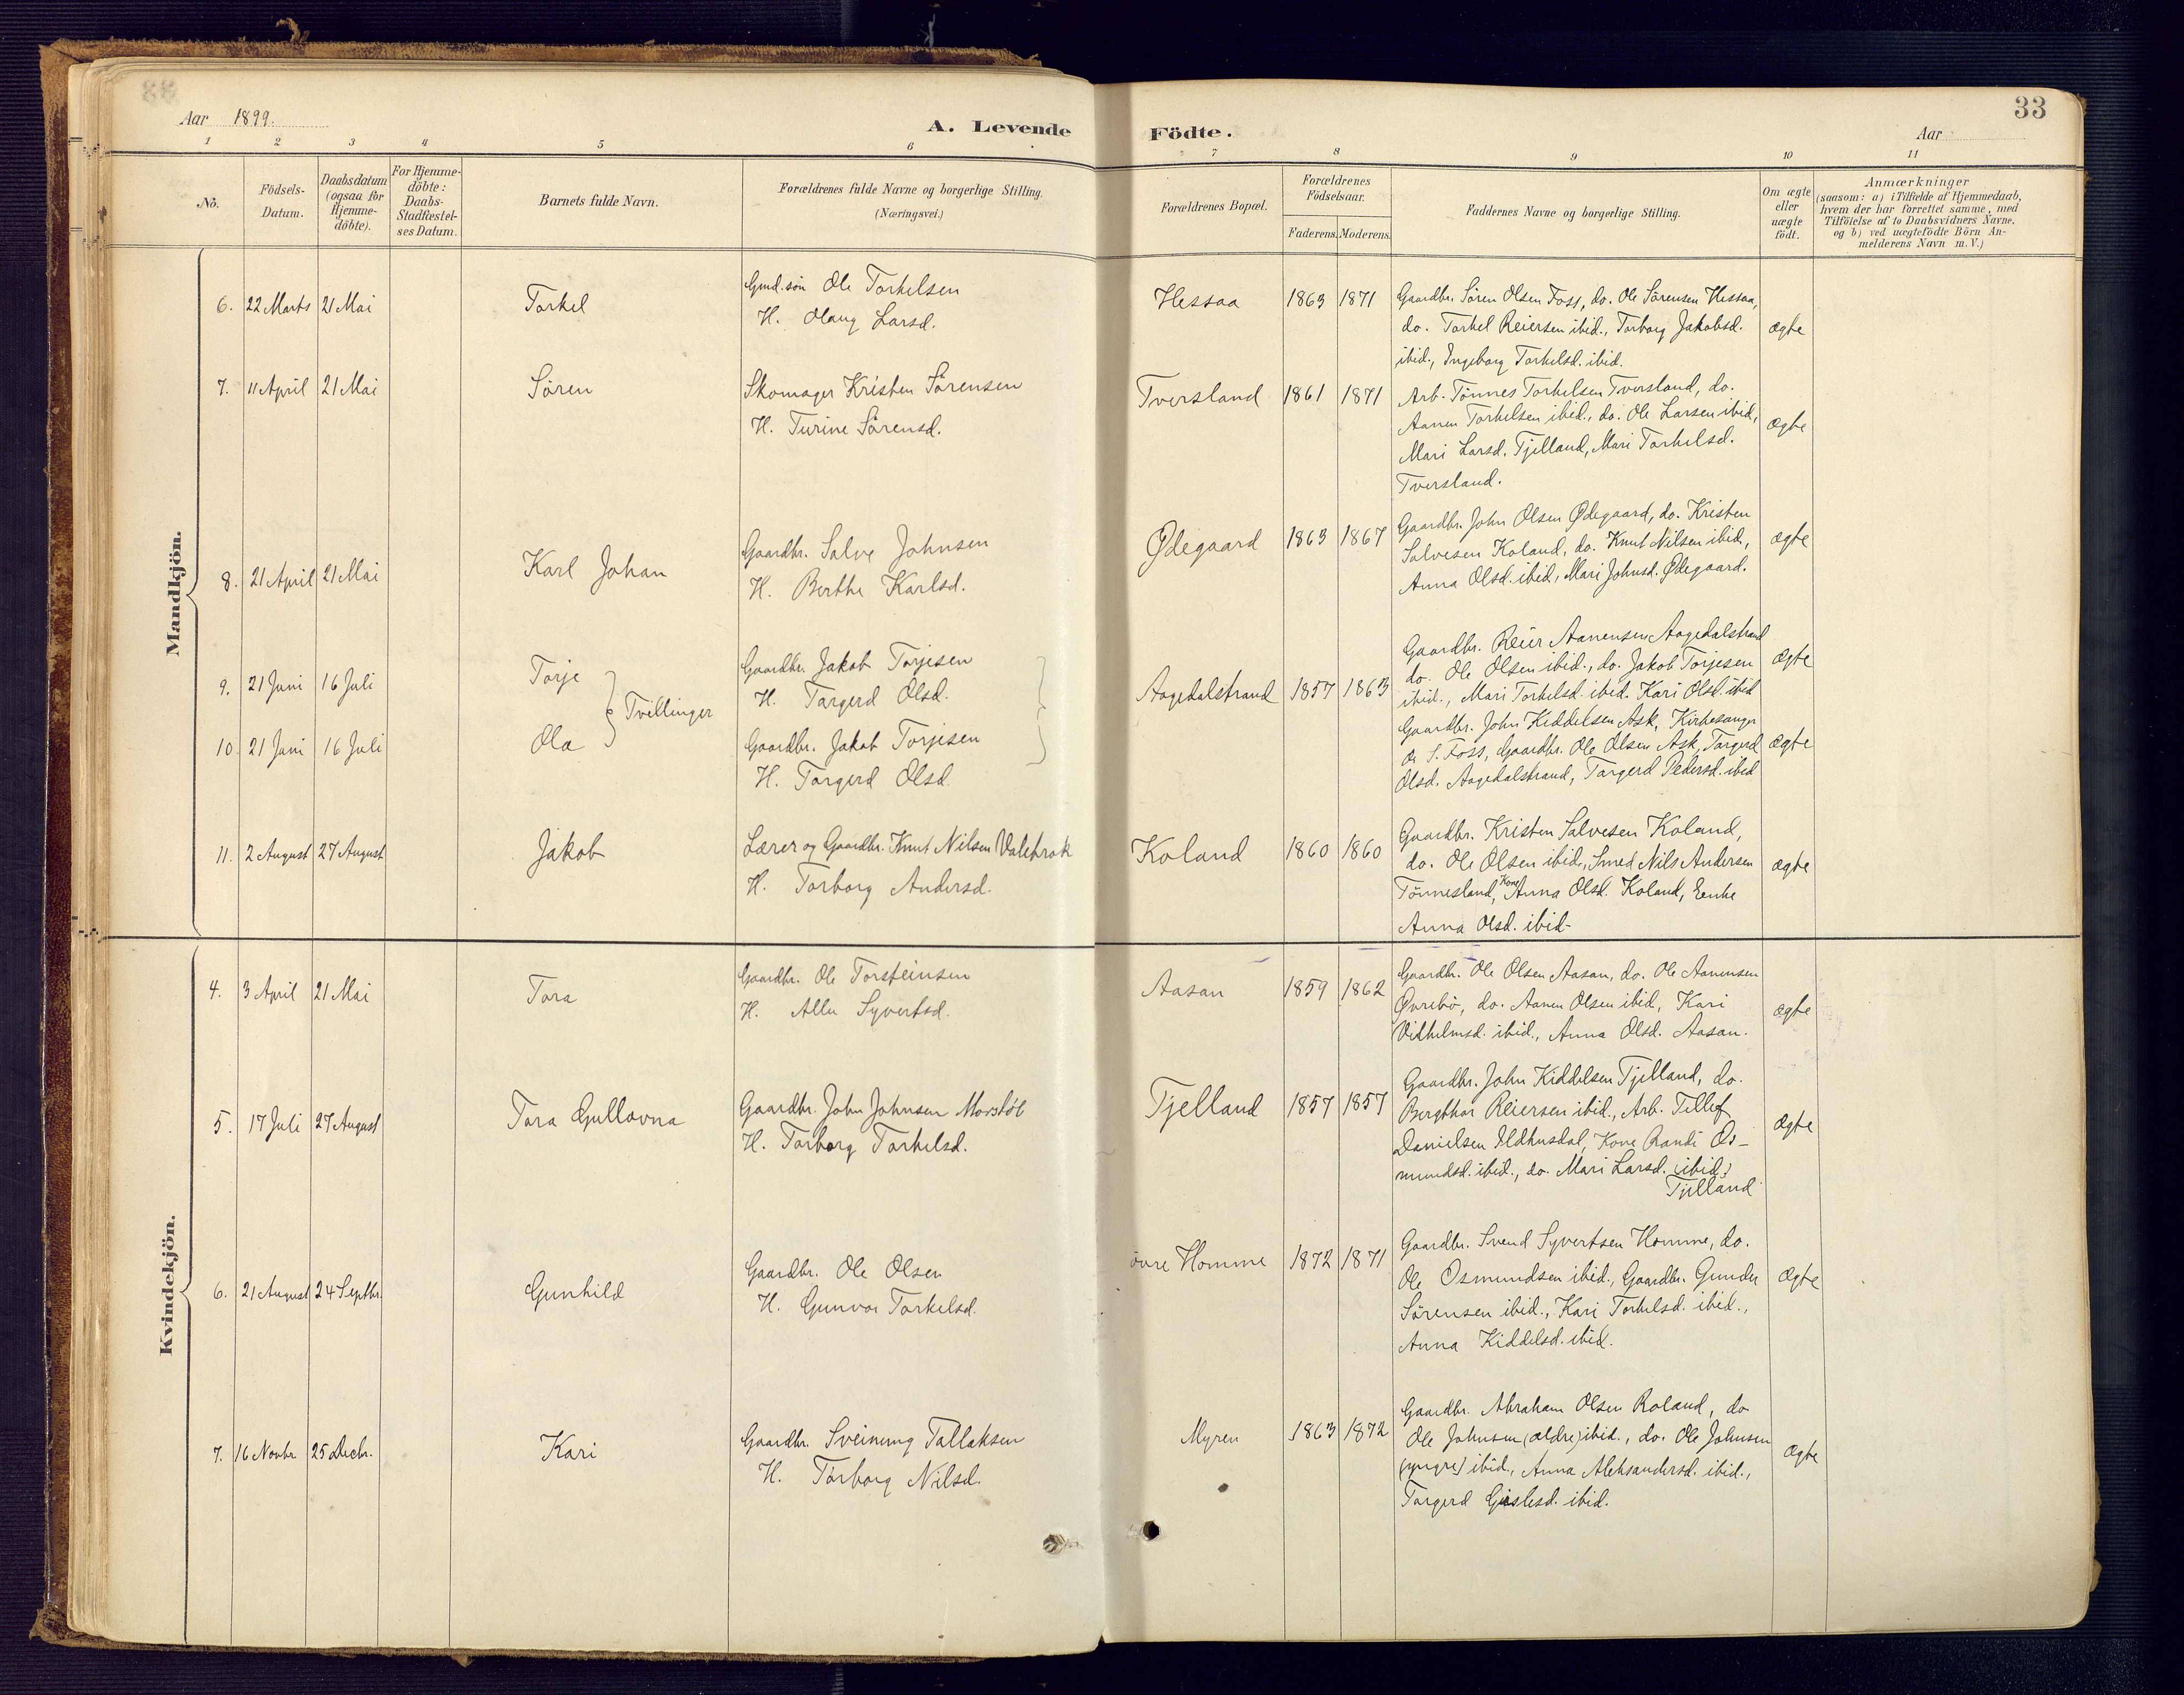 Aar 1899.
A. Levende Födte.
33
Aar
1 2 3 4 5 6 7 8 9 10 11
No.
Födsels-Datum.
Daabsdatum (ogsaa for Hjemme-döbte).
For Hjemme-döbte: Daabs-Stadfæstel-ses Datum.
Barnets fulde Navn.
Forældrenes fulde Navne og borgerlige Stilling. (Næringsvei.)
Forældrenes Bopæl.
Forældrenes Födselsaar.
Faderens. Moderens.
Faddernes Navne og borgerlige Stilling.
Om ægte eller uægte födt.
Anmærkninger
(saasom: a) i Tilfælde af Hjemmedaab,
hvem der har forrettet samme, med
Tilföielse af to Daabsvidners Navne.
og b) ved uægtefödte Börn An-
melderens Navn m. V.)
Mandkjön.
6. 22 Marts 21 Mai Torkel
Gmd.sön Ole Torkelsen
H. Olaug Larsd.
Hessaa 1863 1871
Gaardbr. Sören Olsen Foss, do. Ole Sörensen Hessaa,
do. Torkel Reiersen ibid., Torborg Jakobsd.
ibid., Ingeborg Torkelsd. ibid.
ægte
7. 11 April 21 Mai Sören
Skomager Kristen Sörensen
H. Turine Sörensd.
Tversland 1861 1871
Arb. Tönnes Torkelsen Tversland, do.
Aanen Torkelsen ibid., do. Ole Larsen ibid,
Mari Larsd. Tjelland, Mari Torkelsd.
Tversland.
ægte
8. 21 April 21 Mai Karl Johan
Gaardbr. Salve Johnsen
H. Berthe Karlsd.
Ødegaard 1863 1867
Gaardbr. John Olsen Ødegaard, do. Kristen
Salvesen Koland, do. Knut Nilsen ibid,
Anna Olsd. ibid, Mari Johnsd. Ødegaard.
ægte
9. 21 Juni 16 Juli Torje
Tvillinger
Gaardbr. Jakob Torjesen
H. Torgerd Olsd.
Aagedalstrand 1857 1863
Gaardbr. Reier Aanensen Aagedalstrand
do. Ole Olsen ibid., do. Jakob Torjesen
ibid., Mari Torkelsd. ibid. Kari Olsd. ibid
ægte
10. 21 Juni 16 Juli Ola
Gaardbr. Jakob Torjesen
H. Torgerd Olsd
Gaardbr. John Kiddelsen Ask, Kirkesanger
S. Foss, Gaardbr. Ole Olsen Ask, Torgerd
Olsd. Aagedalstrand, Torgerd Pedersd. ibid
ægte
11. 2 August 27 August Jakob
Lærer og Gaardbr. Knut Nilsen Valebrok
H. Torborg Andersd.
Koland 1860 1860
Gaardbr. Kristen Salvesen Koland,
do. Ole Olsen ibid., Smed Nils Andersen
Tönnesland, Kone Anna Olsd. Koland, Enke
Anna Olsd. ibid-
ægte
Kvindekjön.
4. 3 April 21 Mai Tora
Gaardbr. Ole Torsteinsen
H. Alle Syvertsd.
Aasan 1859 1862
Gaardbr. Ole Olsen Aasan, do. Ole Aanensen
Øvrebö, do. Aanen Olsen ibid, Kari
Vilhelmsd. ibid., Anna Olsd. Aasan.
ægte
5. 17 Juli 27 August Tora Gullovna
Gaardbr. John Johnsen
H. Torborg Torkelsd.
Tjelland 1857 1857
Gaardbr. John Kiddelsen Tjelland, do.
Bergthor Reiersen ibid., Arb. Tellef
Danielsen Ildhusdal, Kone Randi Os-
mundsd. ibid., do. Mari Larsd. (ibid)
Tjelland
ægte
6. 21 August 24 Septbr. Gunhild
Gaardbr. Ole Olsen
H. Gunvor Torkelsd.
övre Homme 1872 1871
Gaardbr. Svend Syvertsen Homme, do.
Ole Osmundsen ibid., Gaardbr. Gunder
Sörensen ibid., Kari Torkelsd. ibid.,
Anna Kiddelsd. ibid.
ægte
7. 16 Novbr 25 Decbr. Kari
Gaardbr. Sveinung Tallaksen
H. Torborg Nilsd.
Myren 1863 1872
Gaardbr. Abraham Olsen Roland, do
Ole Johnsen (ældre) ibid., do. Ole Johnsen
(yngre) ibid., Anna Aleksandersd. ibid.,
Torgerd Gislesd. ibid.
ægte